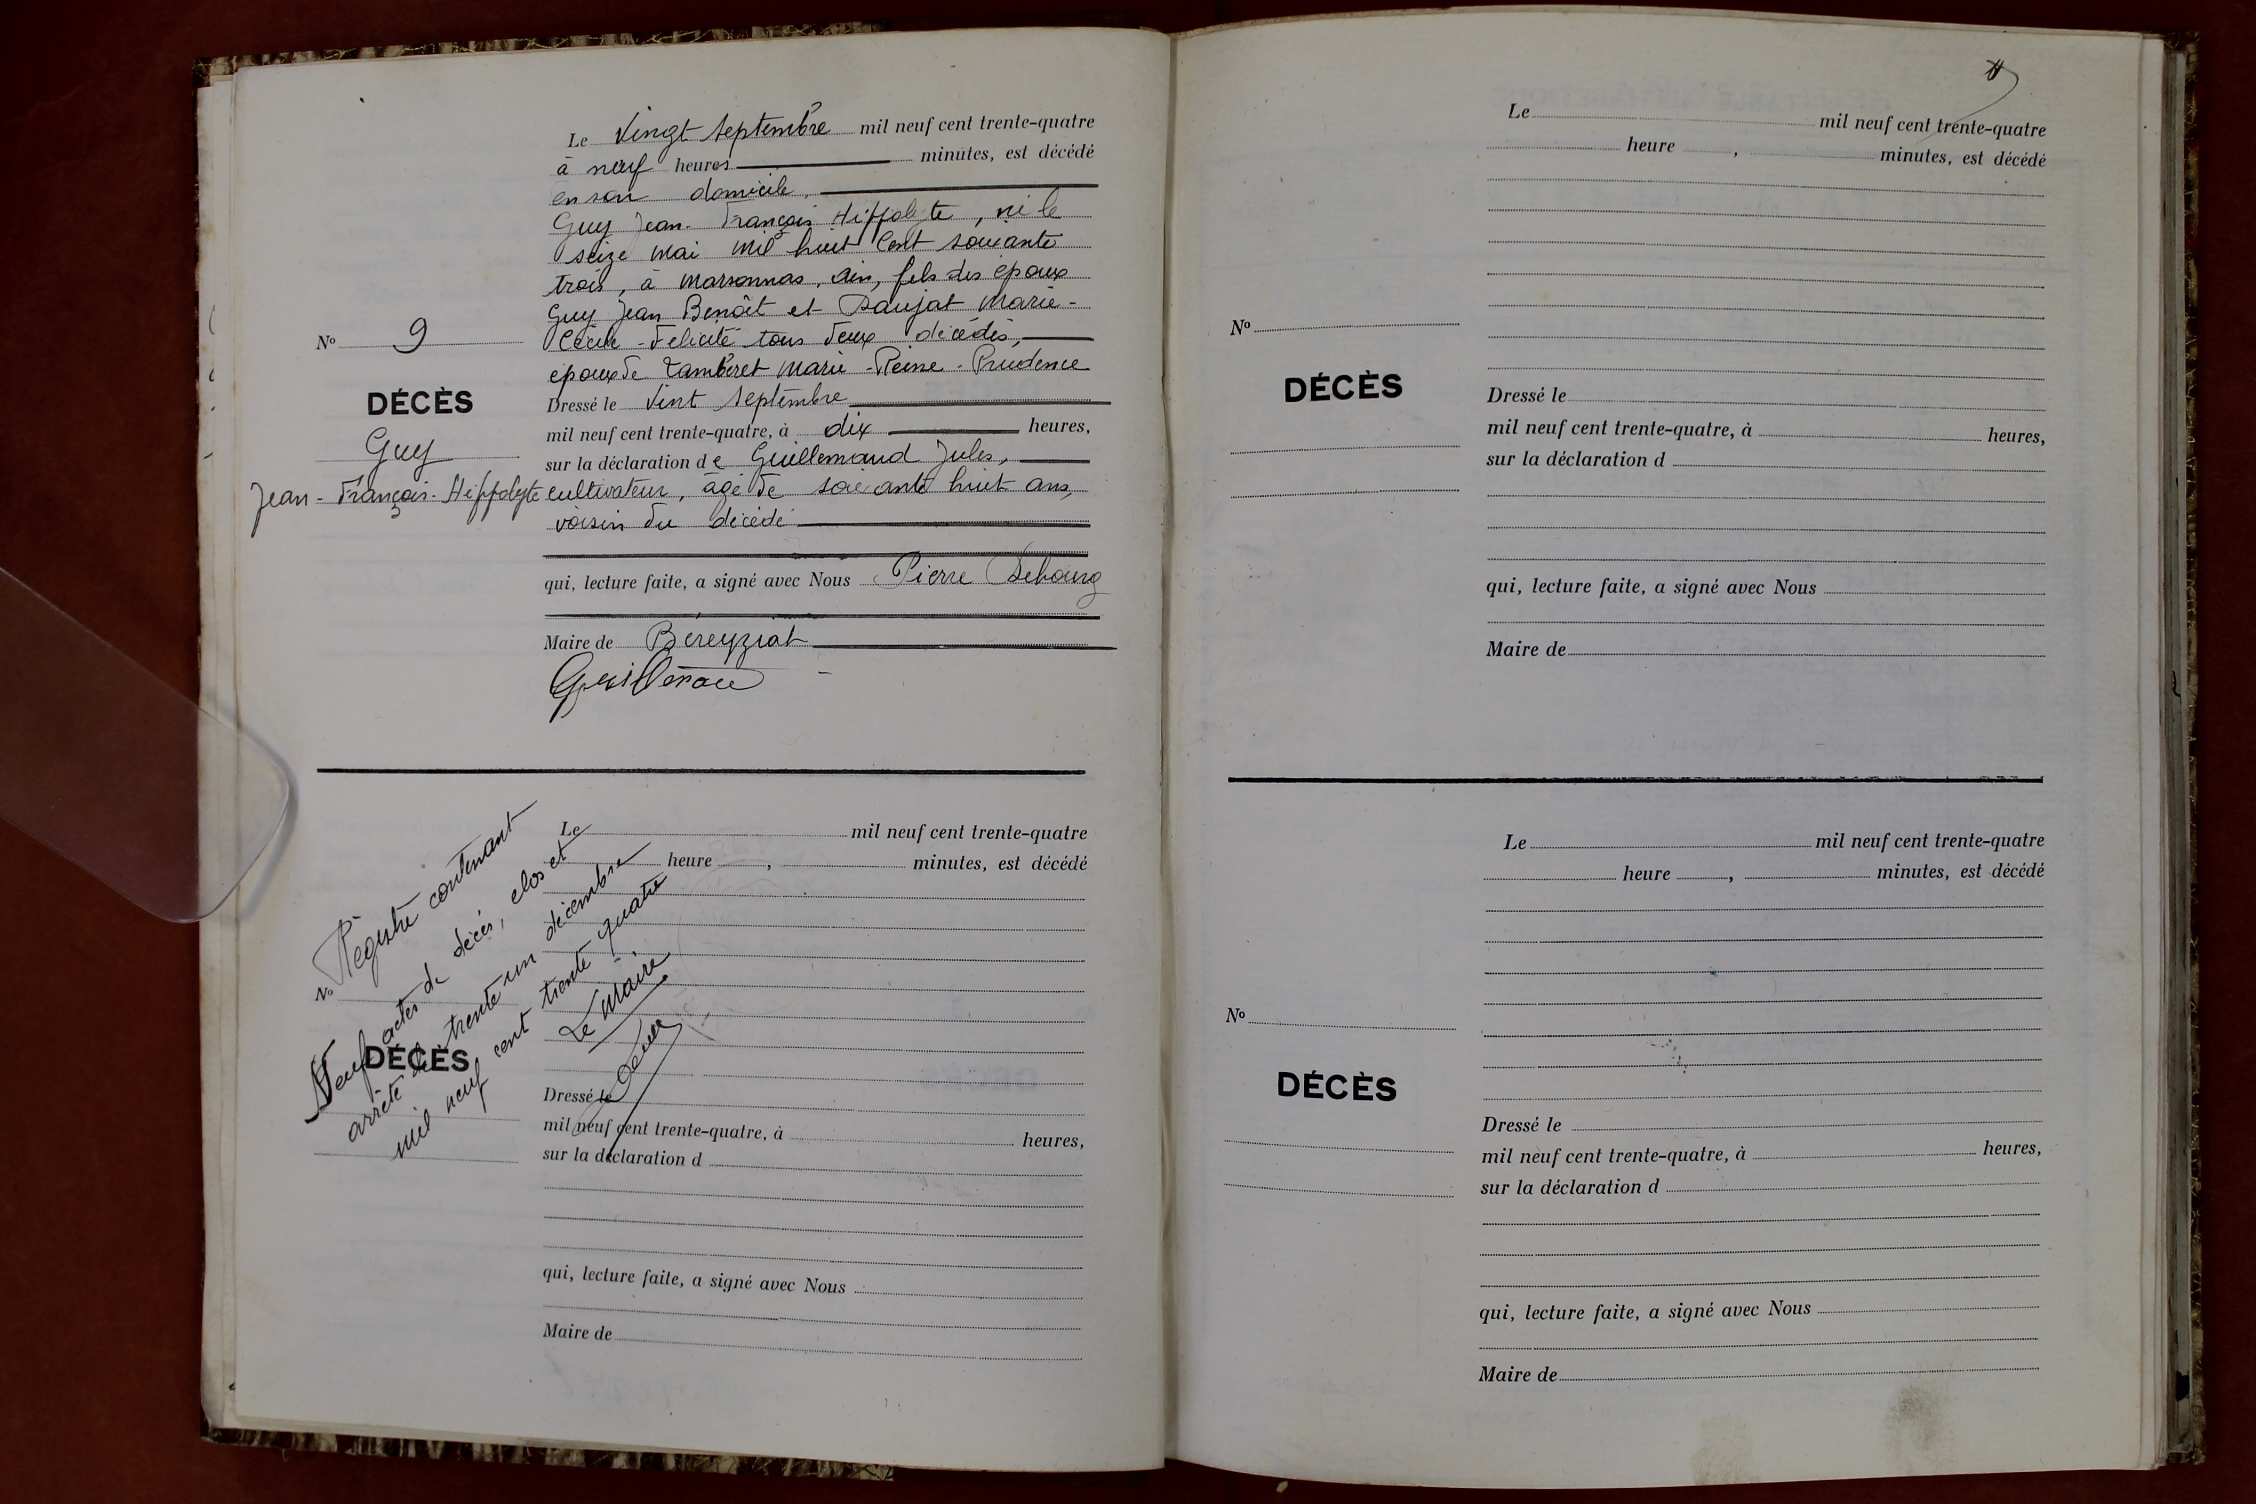 Le vingt septembre mil neuf cent trente-quatre
à neuf heures minutes, est décédé
en son domicile,
Guy Jean-François Hippolyte, né le
seize mai mil huit cent soixante
trois, à Marsonnas, Ain, fils des époux
Guy Jean Benoît et Daujat Marie-
Cécile-Félicité tous deux décédés,
époux de Tamberet Marie-Reine-Prudence
N° 9
DÉCÈS
Guy
Jean-François-Hippolyte
Dressé le vint septembre
mil neuf cent trente-quatre, à dix heures,
sur la déclaration de Guillemaud Jules,
cultivateur, âgé de soixante huit ans,
voisin du décédé
qui, lecture faite, a signé avec Nous Pierre
Maire de Béreyziat
Le mil neuf cent trente-quatre
heure , minutes, est décédé
N°
DÉCÈS
Registre contenant
Neuf actes de décès, clos et
arrêté le trente un décembre
mil neuf cent trente quatre
Le Maire
Dressé le
mil neuf cent trente-quatre, à heures,
sur la déclaration d
qui, lecture faite, a signé avec Nous
Maire de
Le mil neuf cent trente-quatre
heure , minutes, est décédé
N°
DÉCÈS
Dressé le
mil neuf cent trente-quatre, à heures,
sur la déclaration d
qui, lecture faite, a signé avec Nous
Maire de
Le mil neuf cent trente-quatre
heure , minutes, est décédé
N°
DÉCÈS
Dressé le
mil neuf cent trente-quatre, à heures,
sur la déclaration d
qui, lecture faite, a signé avec Nous
Maire de